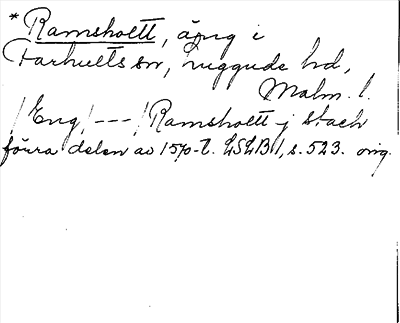 *Ramsholtt, äng i
Farhults sn, Luggude hd,
Malm. l.
/Eng/---/Ramsholtt j stach
förra delen av 1570-t. LSLB 1, s. 523. orig.